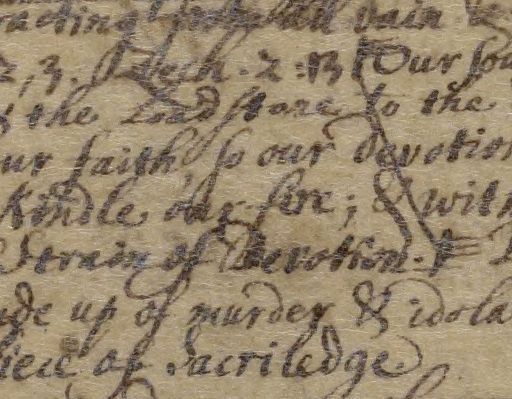 vain
2, 3. Zech. 2:13 Our sou
the Load stone to the
our faith, so our devotion
Kindle our fire; & wit
strain of Devotion.
ade up of murder & idola
piece of Sacriledge